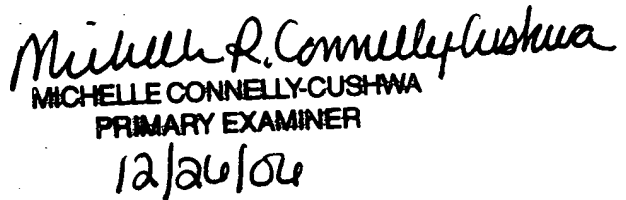 Michelle R. Connelly-Cushwa
MICHELLE CONNELLY-CUSHWA
PRIMARY EXAMINER
12/26/06